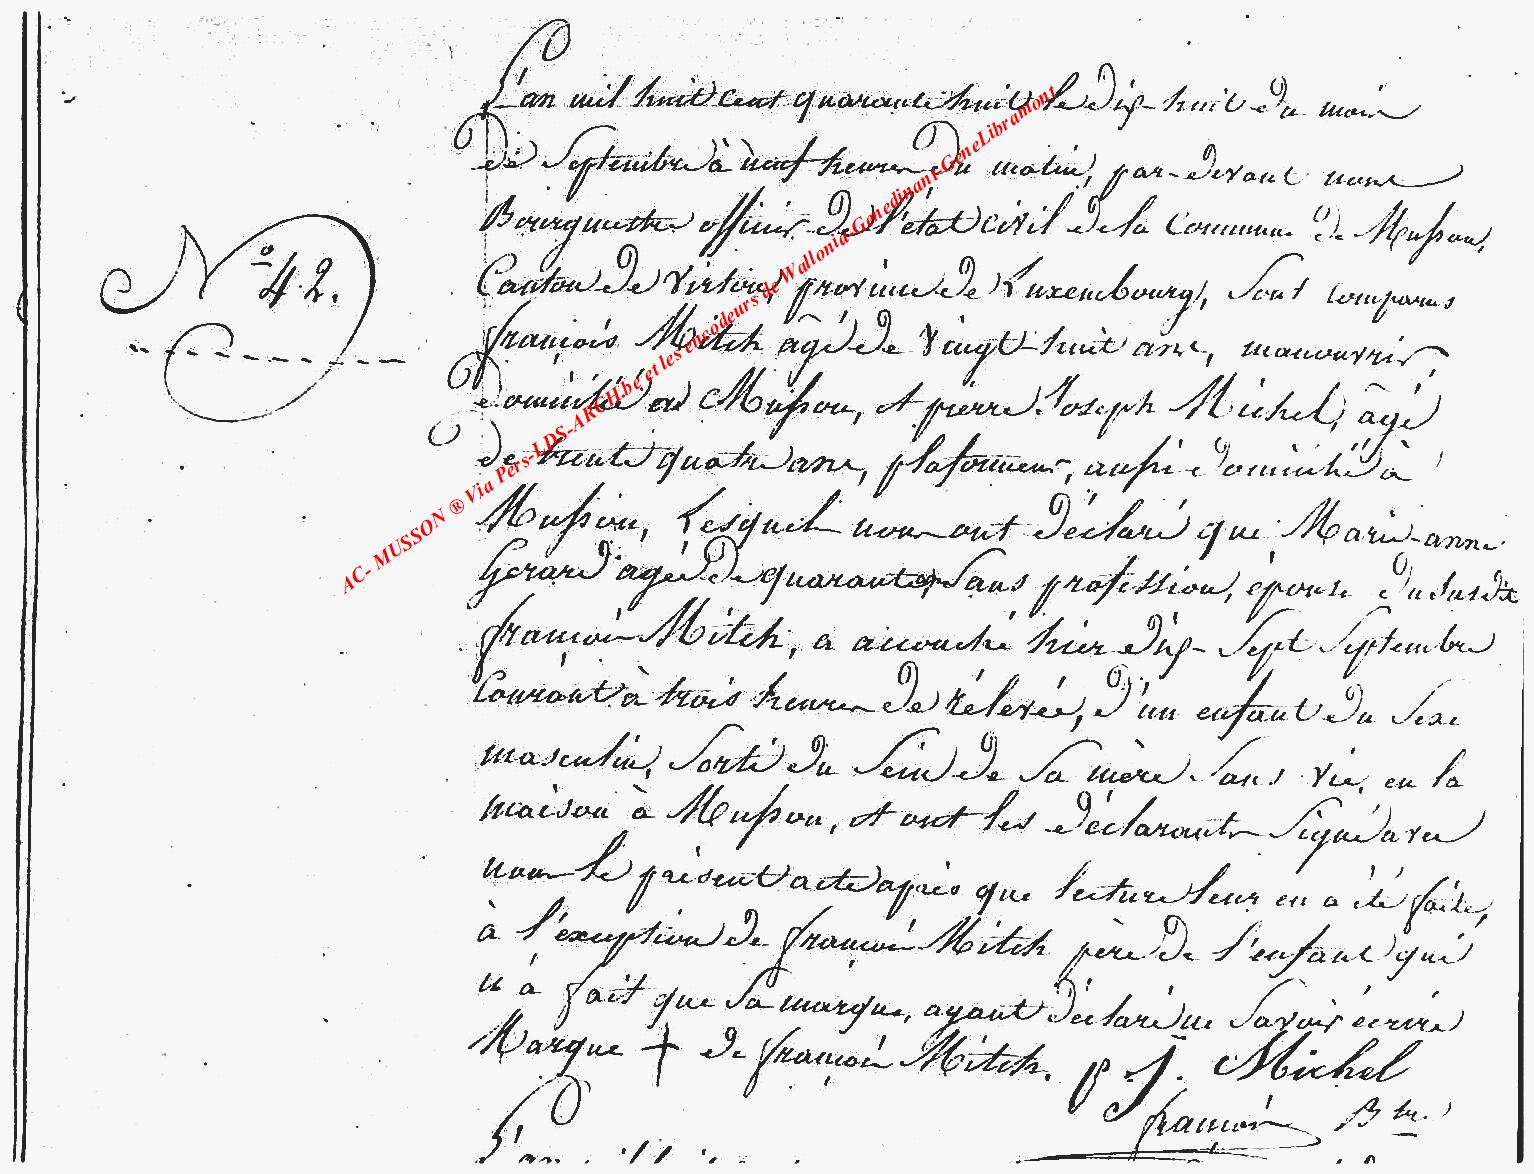 N.º 42.
L'an mil huit cent quarante huit le dix-huit du mois
de Septembre à neuf heures du matin, par-devant nous
Bourguemestre officier de l'état civil de la Commune de Musson,
Canton de Virton, province de Luxembourg, sont comparus
françois Mitch âgé de vingt-huit ans, manouvrier,
domicilié à Musson, et pierre Joseph Michel, âgé
de trente quatre ans, plafonneur, aussi domicilié à
Musson, Lesquels nous ont déclaré que Marie-anne
Gerard agée de quarante sans profession, épouse du susdit
françois Mitch, a accouché hier dix-sept Septembre
Courant à trois heures de rélevée, d'un enfant du sexe
masculin, sorti du sein de sa mère sans vie, en la
maison à Musson, et ont les déclarants signé avec
nous le présent acte après que lecture leur en a été faite,
à l'exception de françois Mitch père de l'enfant qui
n'a fait que sa marque, ayant déclaré ne savoir écrire
Marque + de françois Mitch. p. J. Michel
françois Btre.
L'an
AC- MUSSON ® Via Pers-LDS-ARGH.be et les encodeurs de Wallonia-Genedinant-GeneLibramont